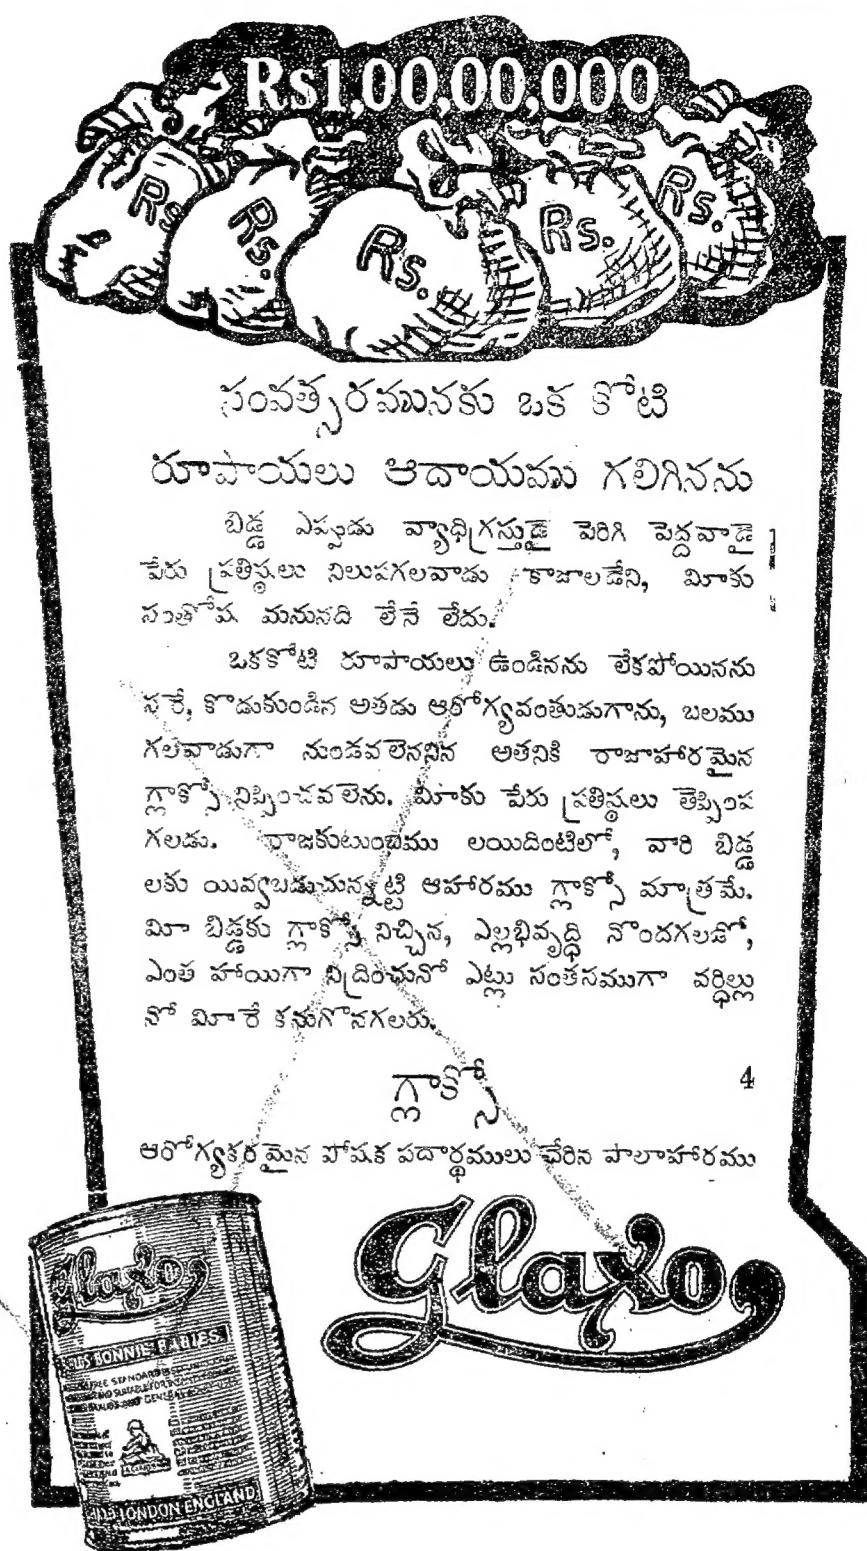 Rs1,00,00,000
Rs. Rs. Rs. Rs. Rs.
సంవత్సరమునకు ఒక కోటి
రూపాయలు ఆదాయము గలిగినను
బిడ్డ ఎప్పుడు వ్యాధిగ్రస్తుడై పెరిగి పెద్దవాడై
పేరు ప్రతిష్ఠలు నిలుపగలవాడు కాజాలడేని, మీకు
సంతోష మనునది లేనే లేదు.
ఒకకోటి రూపాయలు ఉండినను లేకపోయినను
సరే, కొడుకుండిన అతడు ఆరోగ్యవంతుడుగాను, బలము
గలవాడుగా నుండవలెననిన అతనికి రాజాహారమైన
గ్లాక్సో నిప్పించవలెను. మీకు పేరు ప్రతిష్ఠలు తెప్పింప
గలడు. రాజకుటుంబము లయిదింటిలో, వారి బిడ్డ
లకు యివ్వబడుచున్నట్టి ఆహారము గ్లాక్సో మాత్రమే.
మీ బిడ్డకు గ్లాక్సో నిచ్చిన, ఎల్లభివృద్ధి నొందగలడో,
ఎంత హాయిగా నిద్రించునో ఎట్లు సంతసముగా వర్ధిల్లు
నో మీరే కనుగొనగలరు.
గ్లాక్సో 4
ఆరోగ్యకరమైన పోషక పదార్థములు చేరిన పాలాహారము
Glaxo
Glaxo
BONNIE BABIES
LONDON ENGLAND